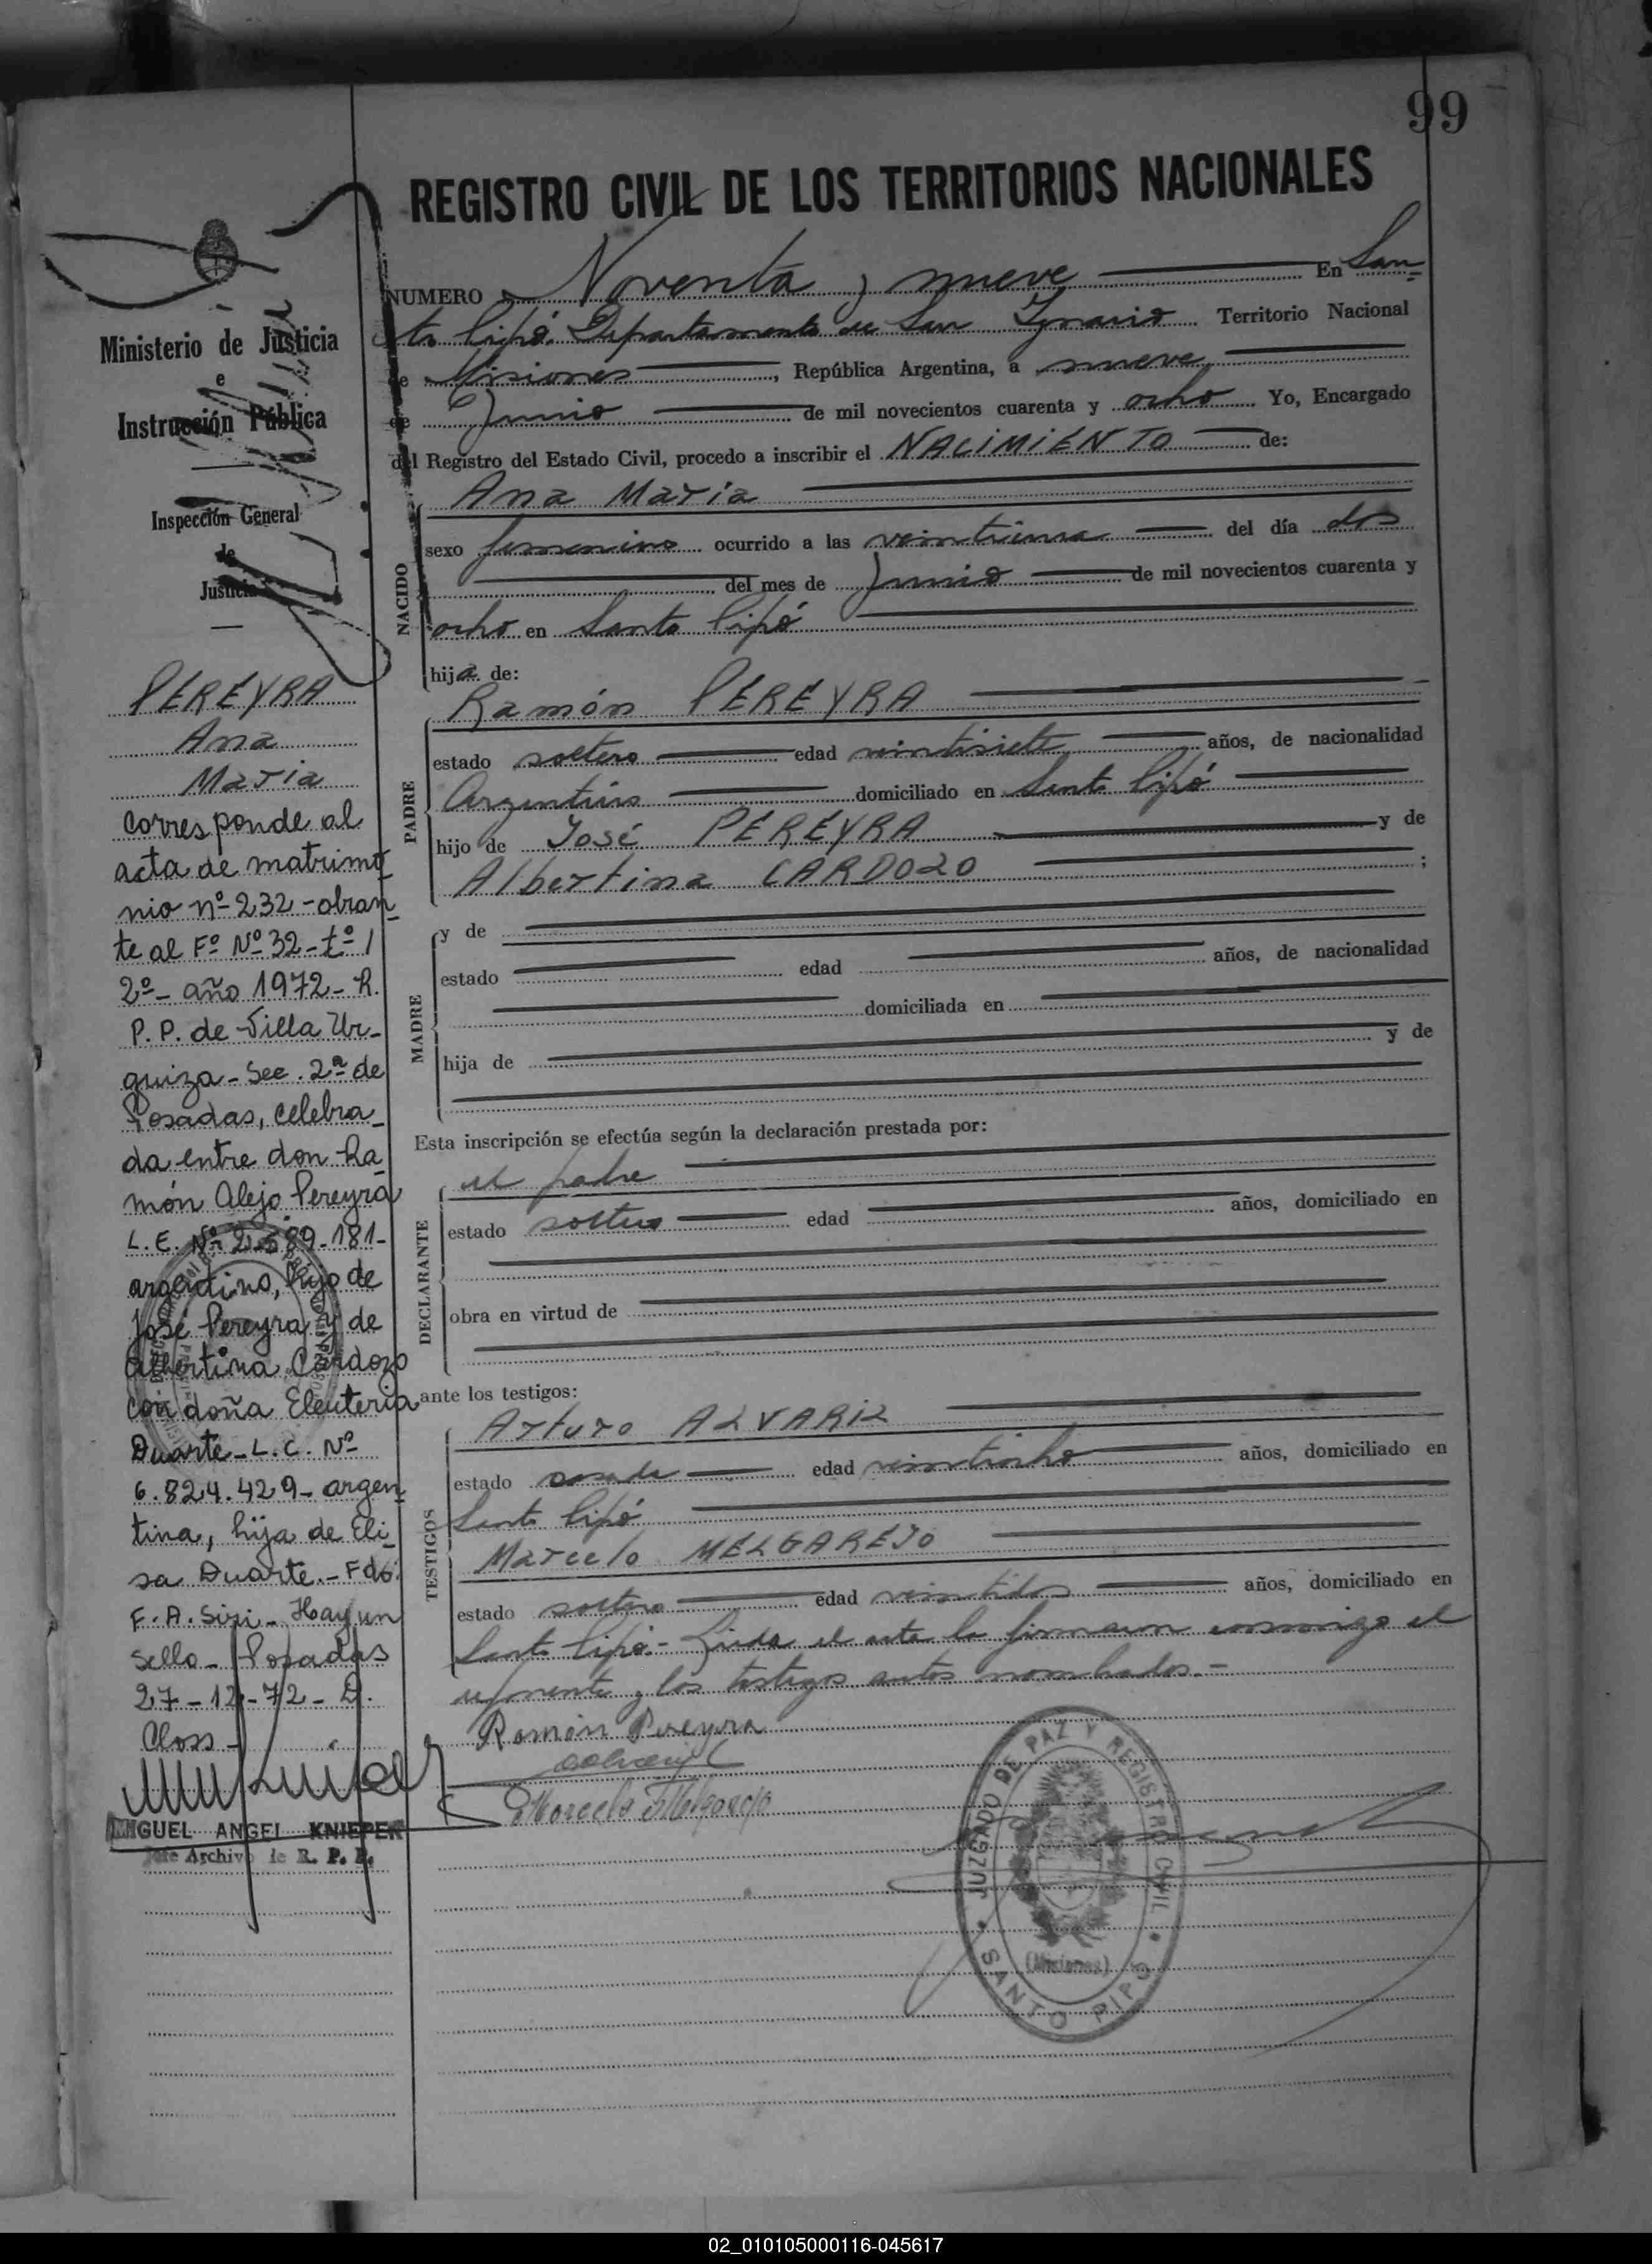 99
REGISTRO CIVIL DE LOS TERRITORIOS NACIONALES
NUMERO Noventa y nueve En San-
to Pipó. Departamento de San Ignacio Territorio Nacional
de Misiones, República Argentina, a nueve
de Junio de mil novecientos cuarenta y ocho Yo, Encargado
del Registro del Estado Civil, procedo a inscribir el NACIMIENTO de:
NACIDO
Ana Maria
sexo femenino ocurrido a las veintiuna del día dos
del mes de Junio de mil novecientos cuarenta y
ocho en Santo Pipó
hija de:
PADRE
Ramón PEREYRA
estado soltero edad veintisiete años, de nacionalidad
Argentino domiciliado en Santo Pipó
hijo de José PEREYRA y de
Albertina CARDOZO ;
MADRE
y de
estado edad años, de nacionalidad
domiciliada en
hija de y de
Esta inscripción se efectúa según la declaración prestada por:
DECLARANTE
el padre
estado soltero edad años, domiciliado en
obra en virtud de
ante los testigos:
TESTIGOS
Arturo ALVARIZ
estado casado edad veintiocho años, domiciliado en
Santo Pipó
Marcelo MELGAREJO
estado soltero edad veintidos años, domiciliado en
Santo Pipó.- Leida el acta la firmaron conmigo el
exponente y los testigos antes nombrados.-
Ramón Pereyra
Marcelo Melgarejo
JUZGADO DE PAZ Y REGISTRO CIVIL
(Misiones)
SANTO PIPÓ
Ministerio de Justicia
e
Instrucción Pública
Inspección General
de
Justicia
PEREYRA
Ana
Maria
Corresponde al
acta de matrimo
nio nº 232 - obran
te al Fº Nº 32 - tº 1
2º - año 1972 - R.
P. P. de Villa Ur-
quiza - Sec. 2ª de
Posadas, celebra
da entre don Ra
món Alejo Pereyra
L. E. Nº
argentino, hijo de
José Pereyra y de
Albertina Cardozo
con doña Eleuteria
Duarte - L. C. Nº
6.824.429 - argen
tina, hija de Eli
sa Duarte. - Fdo:
F. A. Sizi - Hay un
sello - Posadas
27-12-72 - D.
Closs -
MIGUEL ANGEL KNIEPER
Jefe Archivo de R. P. P.
02_010105000116-045617